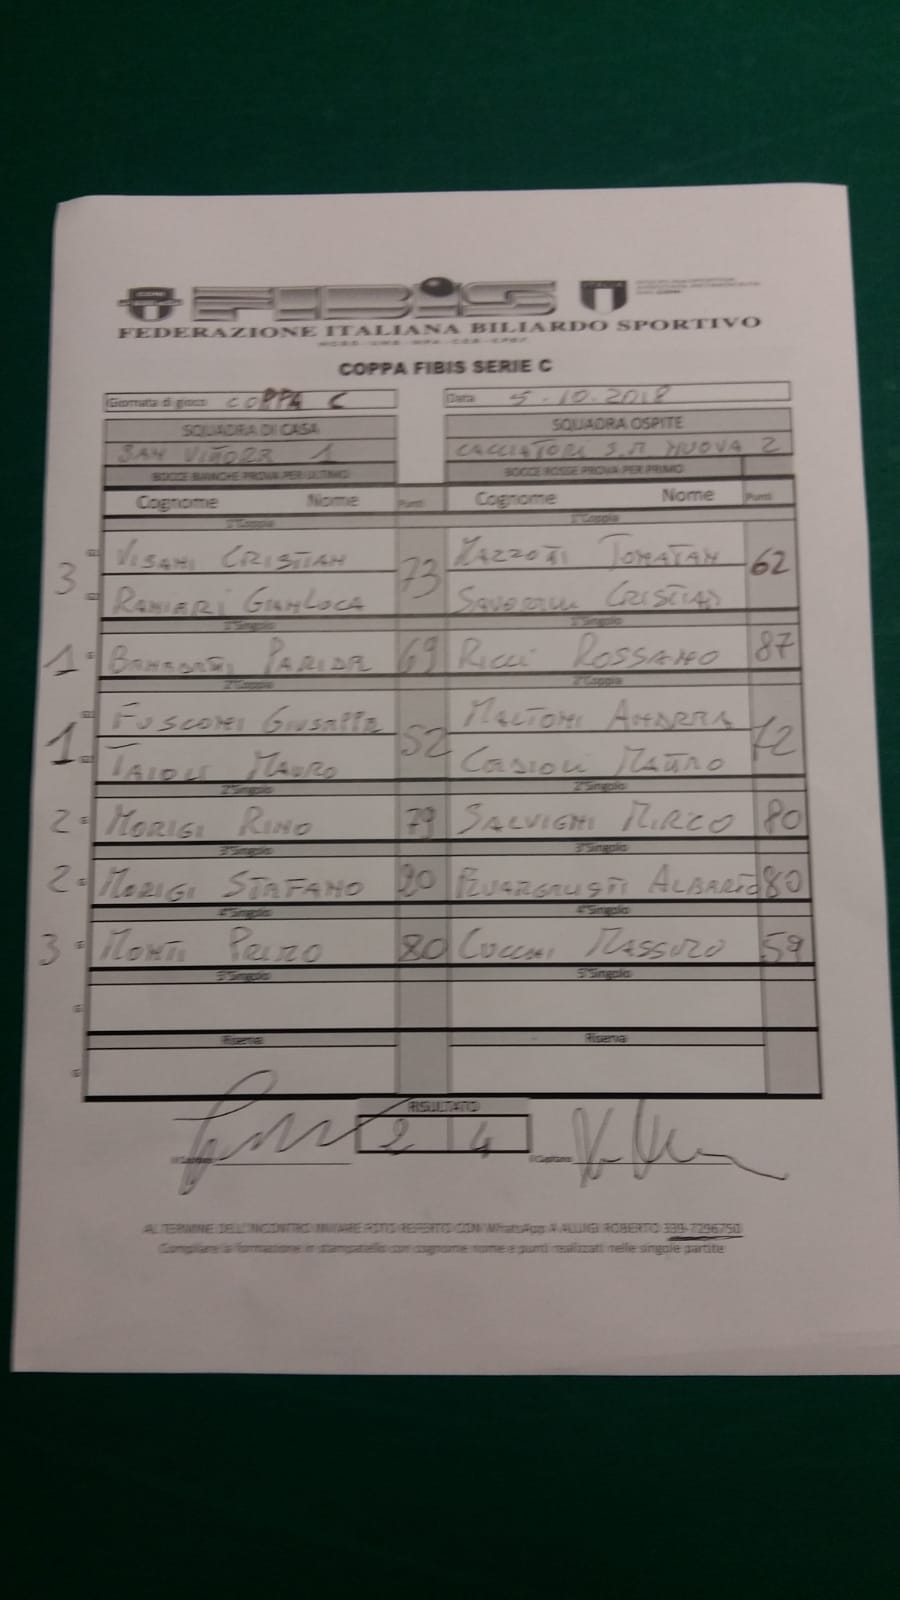 FIBIS
FEDERAZIONE ITALIANA BILIARDO SPORTIVO
COPPA FIBIS SERIE C
Giornata di gioco COPPA C Data 5-10.2018
SQUADRA DI CASA SQUADRA OSPITE
SAN VITTORE 1 CACCIATORI S.M NUOVA 2
BOCCE BIANCHE PROVA PER ULTIMO BOCCE ROSSE PROVA PER PRIMO
Cognome Nome Punti Cognome Nome Punti
1°Coppia 1°Coppia
3 VISANI CRISTIAN 73 MAZZOTTI JONATAN 62
RANIERI GIANLUCA CRISTIAN
1°Singolo 1°Singolo
1 69 RICCI ROSSANO 87
2°Coppia 2°Coppia
1 FUSCONI GIUSEPPE 52 MALTONI ANDREA 72
TAIOLI MAURO CASIOLI MAURO
2°Singolo 2°Singolo
2 MORIGI RINO 79 SALVIGNI MIRCO 80
3°Singolo 3°Singolo
2 MORIGI STEFANO ALBERTO 80
4°Singolo 4°Singolo
3 MONTI PRIMO 80 MASSIMO 59
5°Singolo 5°Singolo
Riserva Riserva
RISULTATO
2 4
Il Capitano Il Capitano
AL TERMINE DELL'INCONTRO INVIARE FOTO REFERTO CON WhatsApp A ALLUIGI ROBERTO 339-7296750
Compilare la formazione in stampatello con cognome nome e punti realizzati nelle singole partite